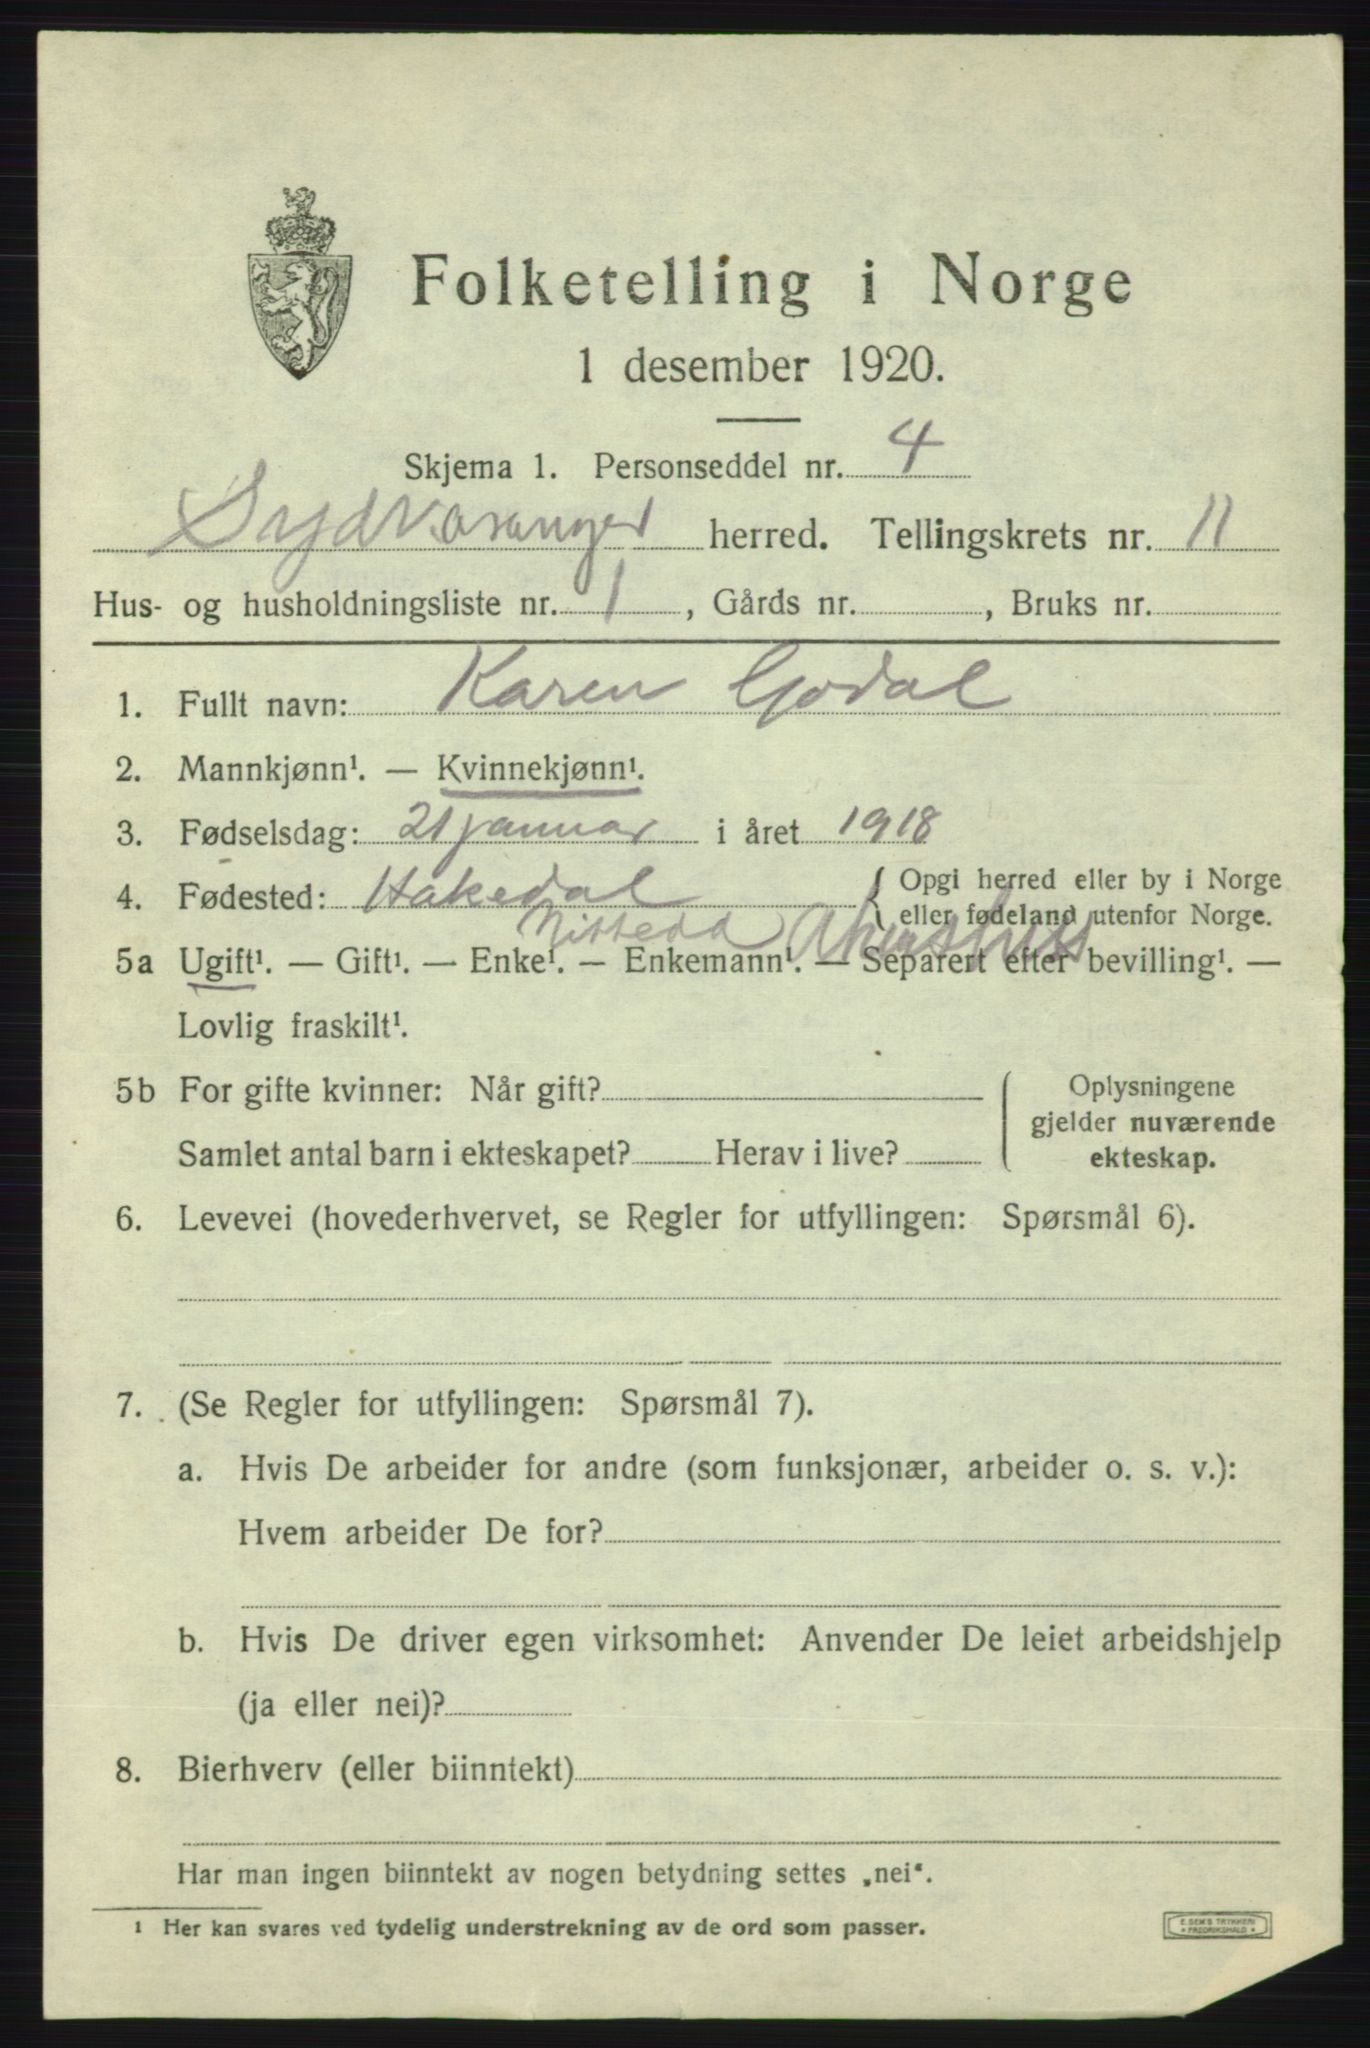 Folketelling i Norge
1 desember 1920.
Skjema 1. Personseddel nr. 4
Sydvaranger herred. Tellingskrets nr. 11
Hus- og husholdningsliste nr. 1, Gårds nr. , Bruks nr.
1. Fullt navn: Karen Godal
2. Mannkjønn¹. — Kvinnekjønn¹.
3. Fødselsdag: 21 januar i året 1918
4. Fødested: Hakedal { Opgi herred eller by i Norge
eller fødeland utenfor Norge.
Nittedal Akershus
5a Ugift¹. — Gift¹. — Enke¹. — Enkemann¹. — Separert efter bevilling¹. —
Lovlig fraskilt¹.
5b For gifte kvinner: Når gift?
Samlet antal barn i ekteskapet? Herav i live?
Oplysningene
gjelder nuværende
ekteskap.
6. Levevei (hovederhvervet, se Regler for utfyllingen: Spørsmål 6).
7. (Se Regler for utfyllingen: Spørsmål 7).
a. Hvis De arbeider for andre (som funksjonær, arbeider o. s. v.):
Hvem arbeider De for?
b. Hvis De driver egen virksomhet: Anvender De leiet arbeidshjelp
(ja eller nei)?
8. Bierhverv (eller biinntekt)
Har man ingen biinntekt av nogen betydning settes „nei“.
¹ Her kan svares ved tydelig understrekning av de ord som passer.
E. SEM'S TRYKKERI
* FREDRIKSHALD *